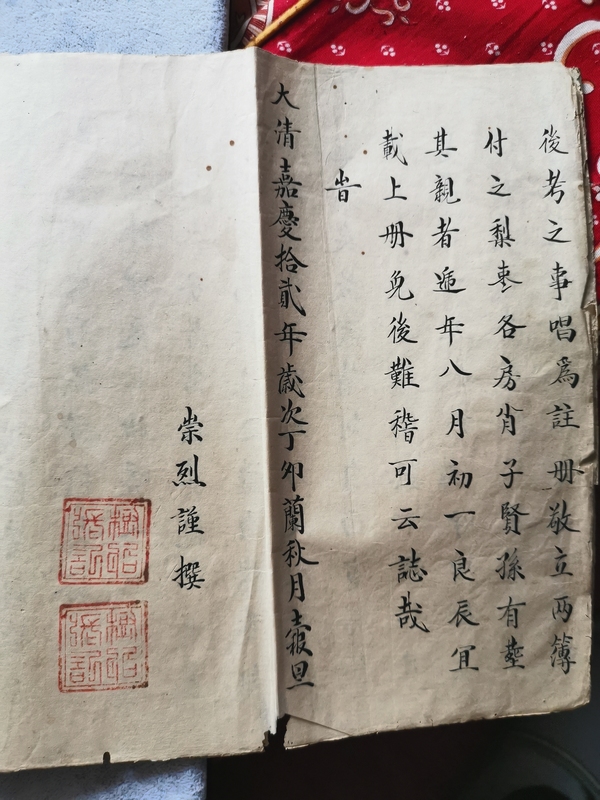 後考之事唱爲註册敬立两簿
付之梨枣各房肖子賢孫有塟
其親者遞年八月初一良辰宜
載上册免後難稽可云誌哉
旹
大清嘉慶拾貳年歲次丁卯蘭秋月穀旦
崇烈謹撰